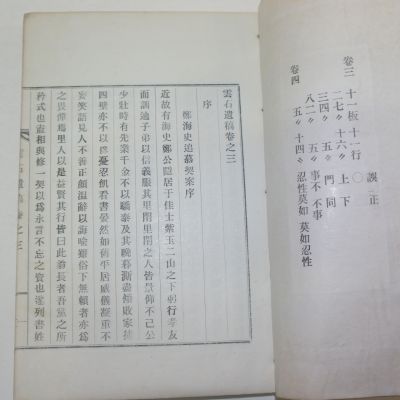 誤 正
卷三 十一板 十一行 〇
二七〃 十六〃 上 下
三四〃 五〃 門 同
八二〃 五〃 事不 不事
卷四 五〃 十四〃 忍性莫如 莫如忍性
雲石遺稿卷之三
序
鄭海史追慕契案序
近故有海史鄭公隱居于佳士紫玉二山之下躬行孝友
面訓迪子弟以信義服其里閈里閈之人皆景仰不已公
少壯時有先業千金不以驕泰及其晩春漸盡傾敗家徒
四壁亦不以爲憂忍飢看書晏然如循平居威儀凝重不
妄笑語見人不善正顔溫辭以誨喩雖俗下無賴者亦爲
之畏憚鄕里人以是益賢其行皆曰此翁長者吾黨之所
矜式也盍相與修一契以爲永言不忘之資也遂列書姓